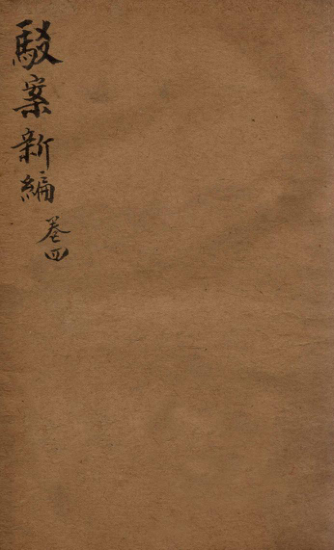 駁案新編
卷四